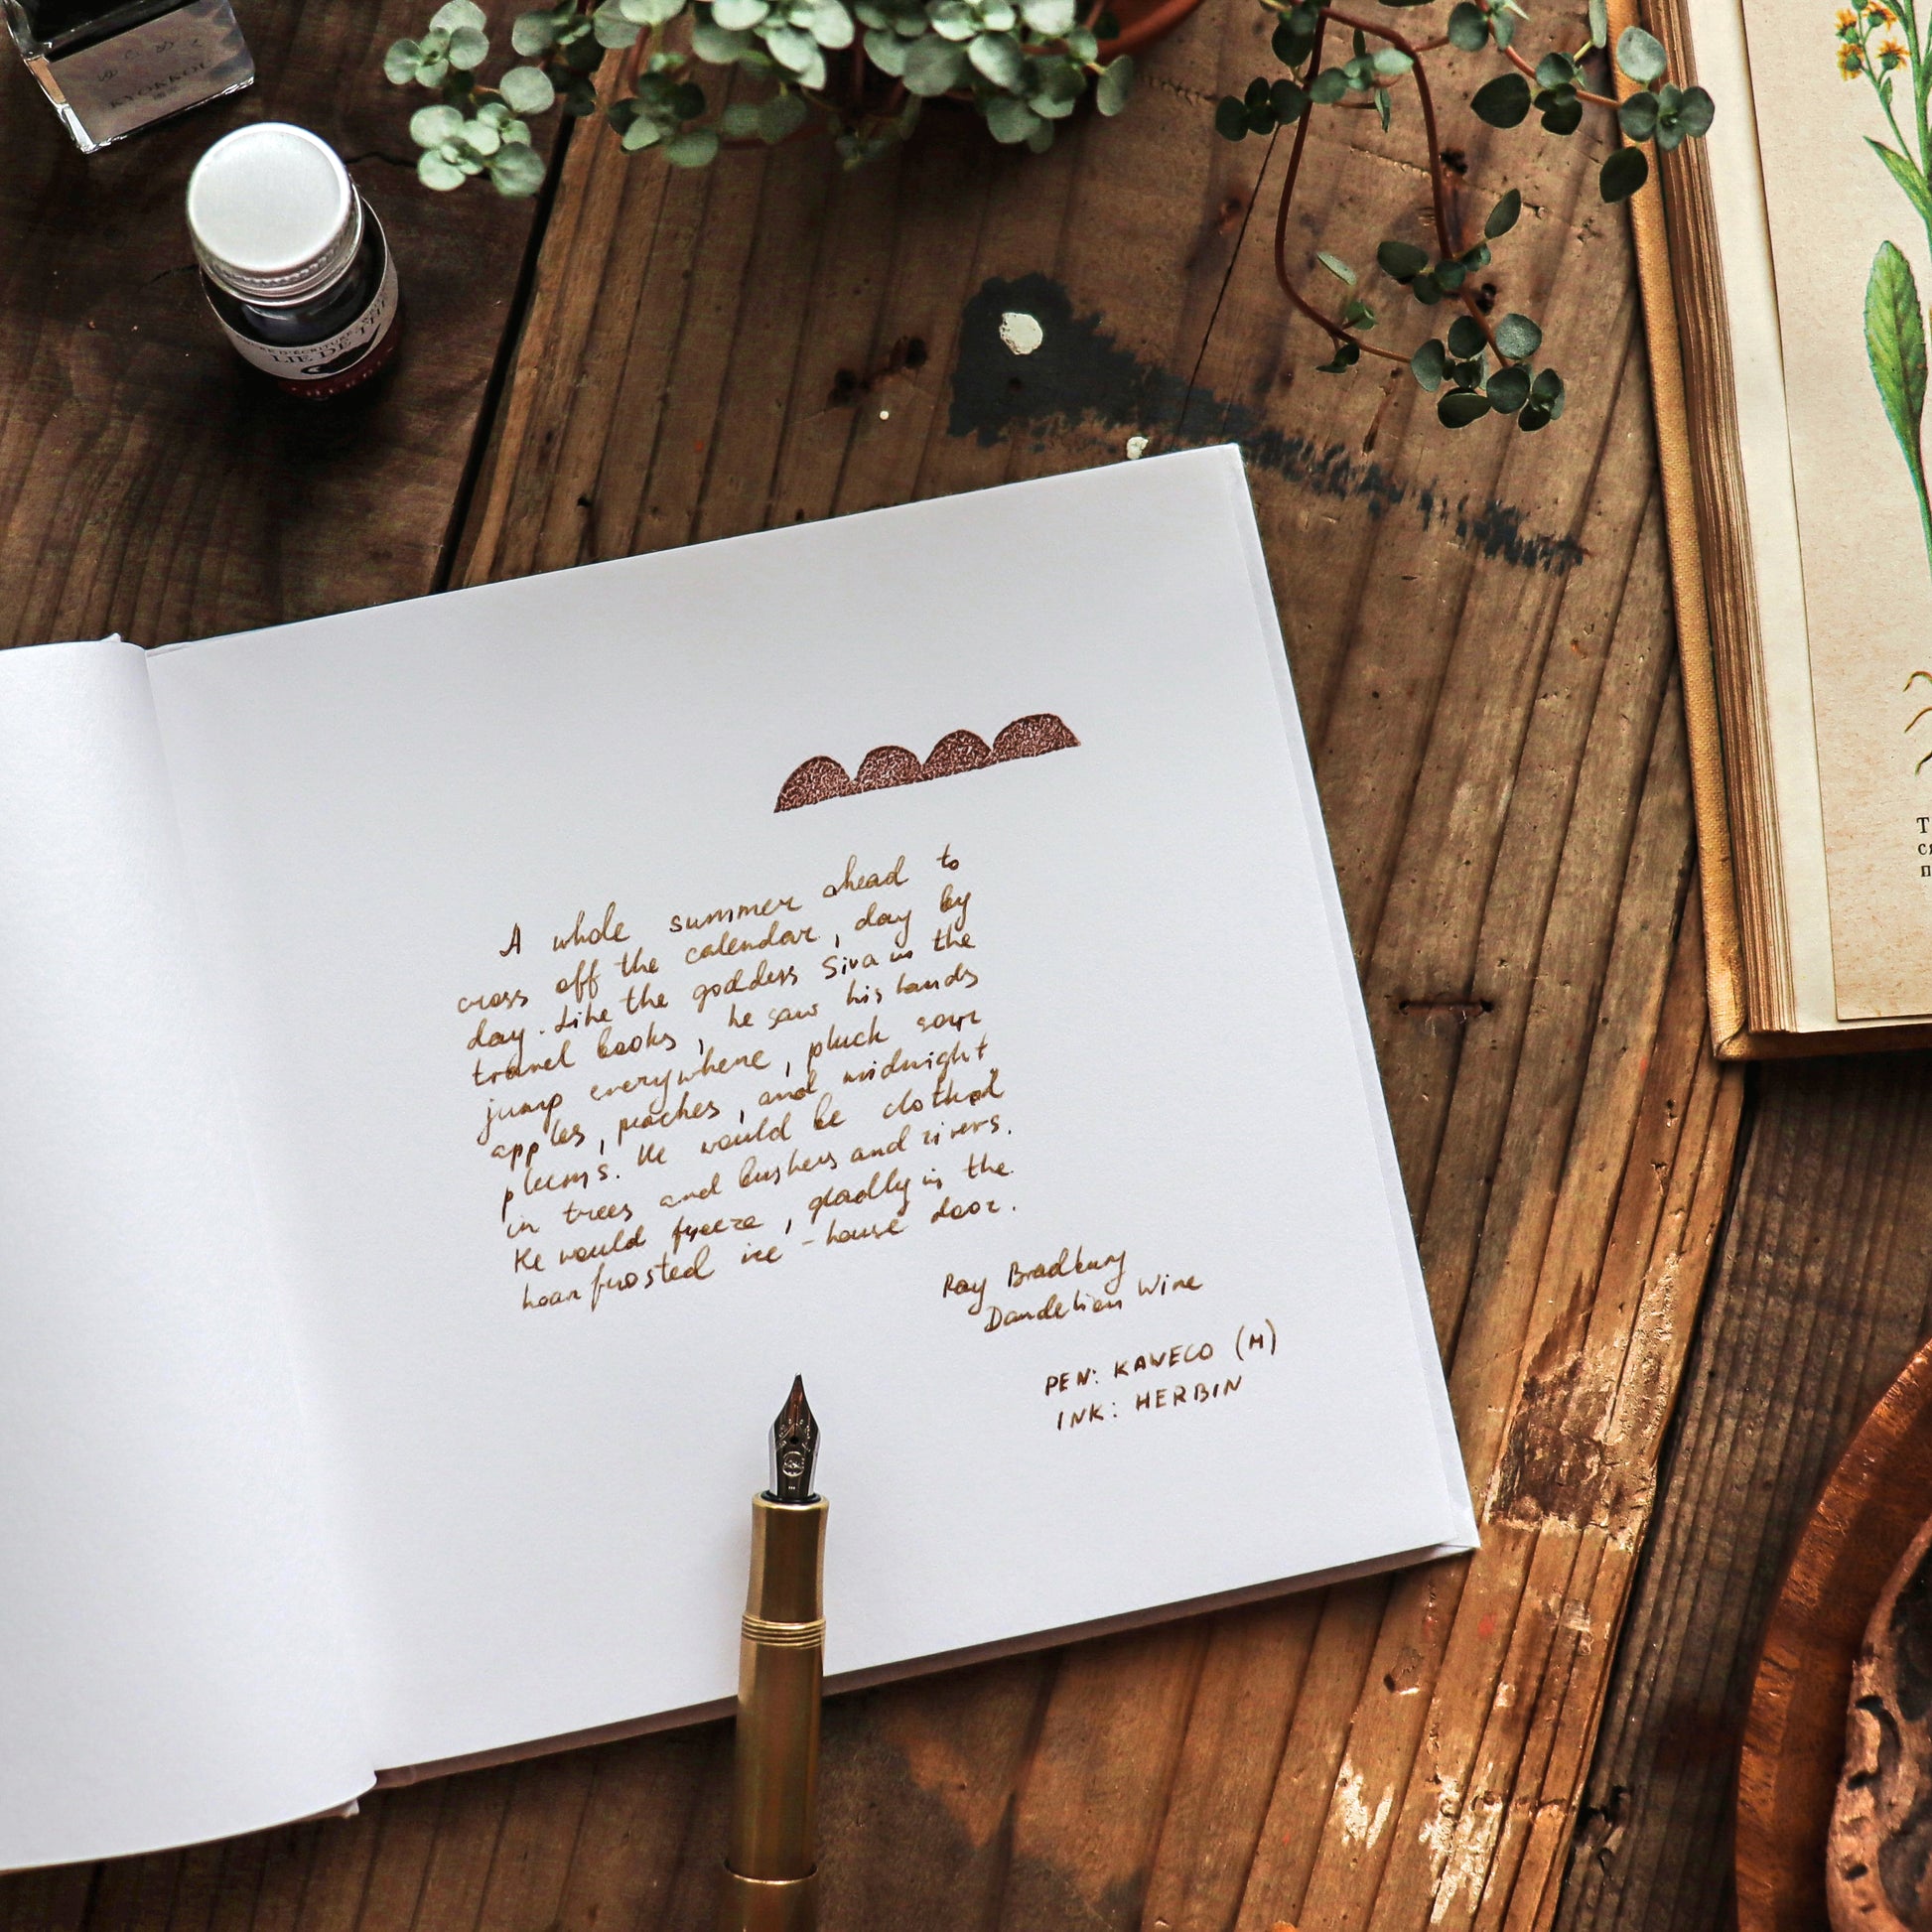 LIE DE
A whole summer ahead to
cross off the calendar, day by
day. Like the goddess Siva in the
travel books, he saw his hands
jump everywhere, pluck sour
apples, peaches, and midnight
plums. He would be clothed
in trees and bushes and rivers.
He would freeze, gladly in the
hoarfrosted ice-house door.
Ray Bradbury
Dandelion Wine
PEN: KAWECO (M)
INK: HERBIN